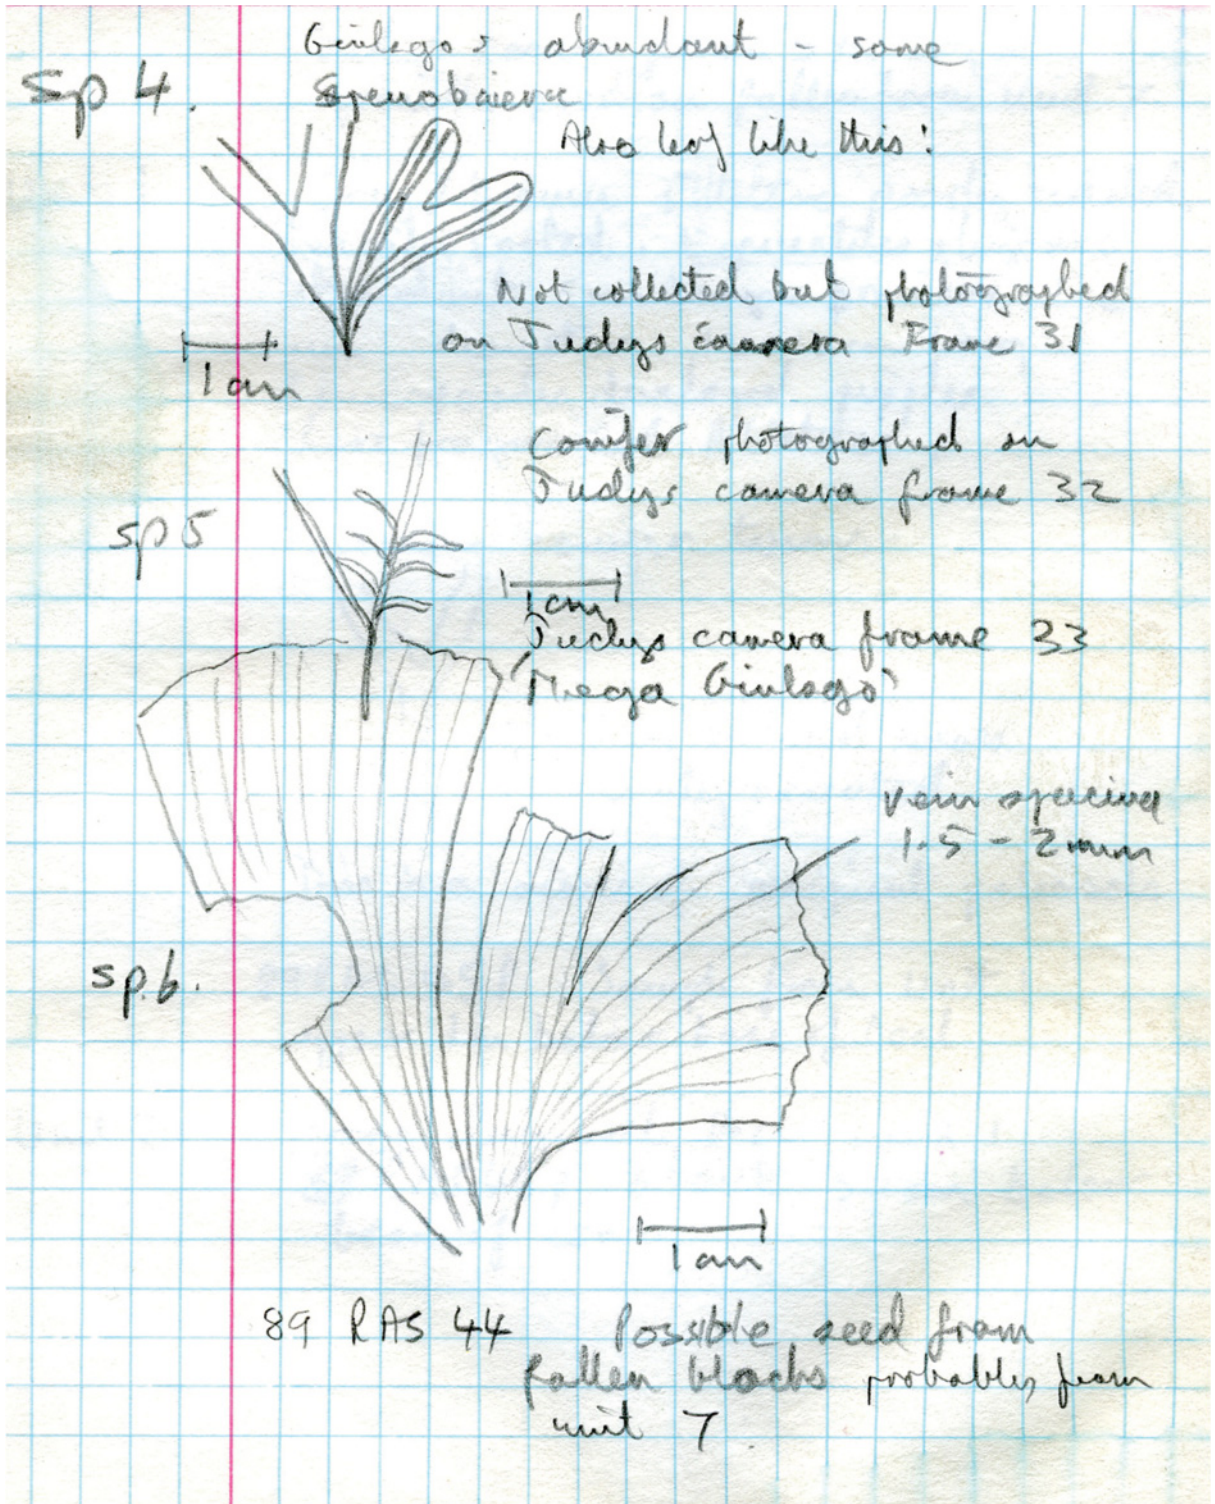 Ginkgos abundant - some
Sp 4.
Spenobaiera
Also leaf like this:
Not collected but photographed
on Judys camera Frame 31
1 cm
Conifer photographed on
Judys camera frame 32
sp 5
1cm
Judys camera frame 33
'Mega Ginkgo'
vein spacing
1.5 - 2 mm
sp.6.
1 cm
89 RAS 44 Possible seed from
fallen blocks probably from
unit 7.